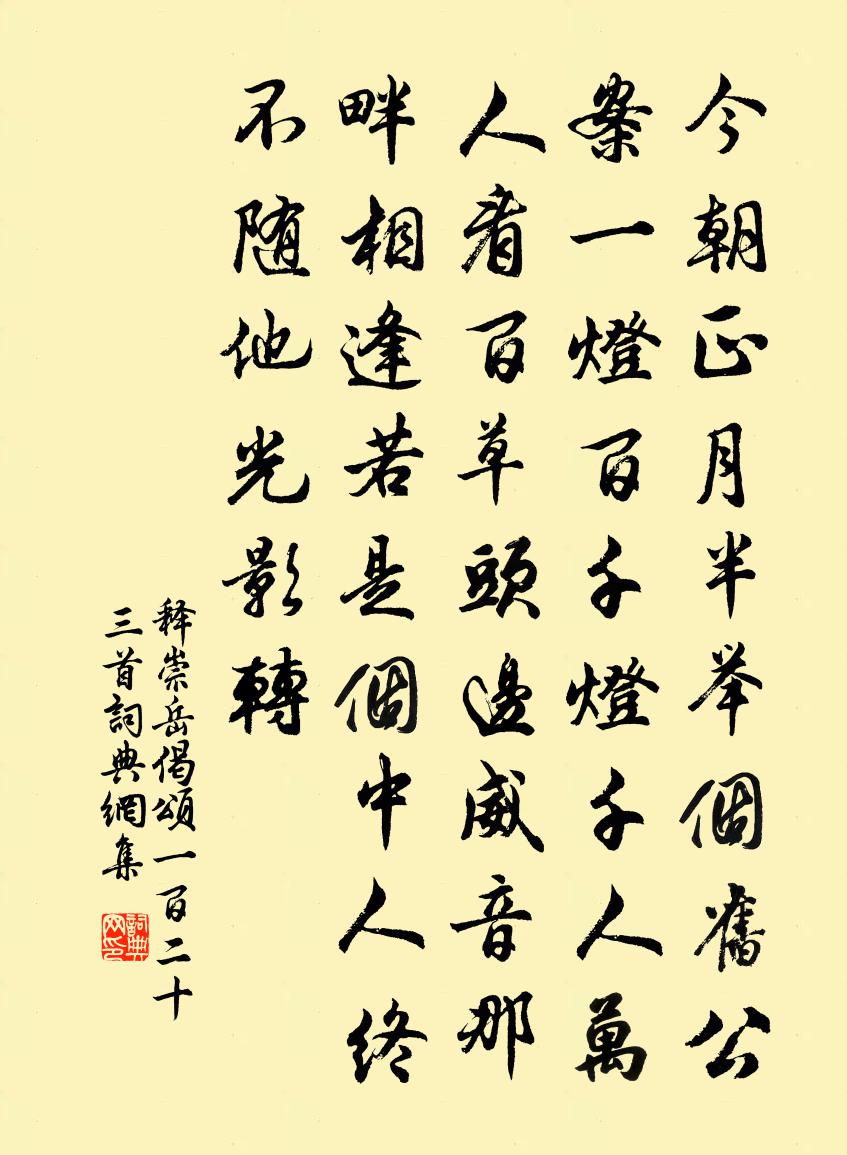 今朝正月半举個舊公
案一燈百千燈千人萬
人看百草頭邊威音那
畔相逢若是個中人终
不随他光影轉
释崇岳偈頌一百二十
三首詞典網集
詞典网印